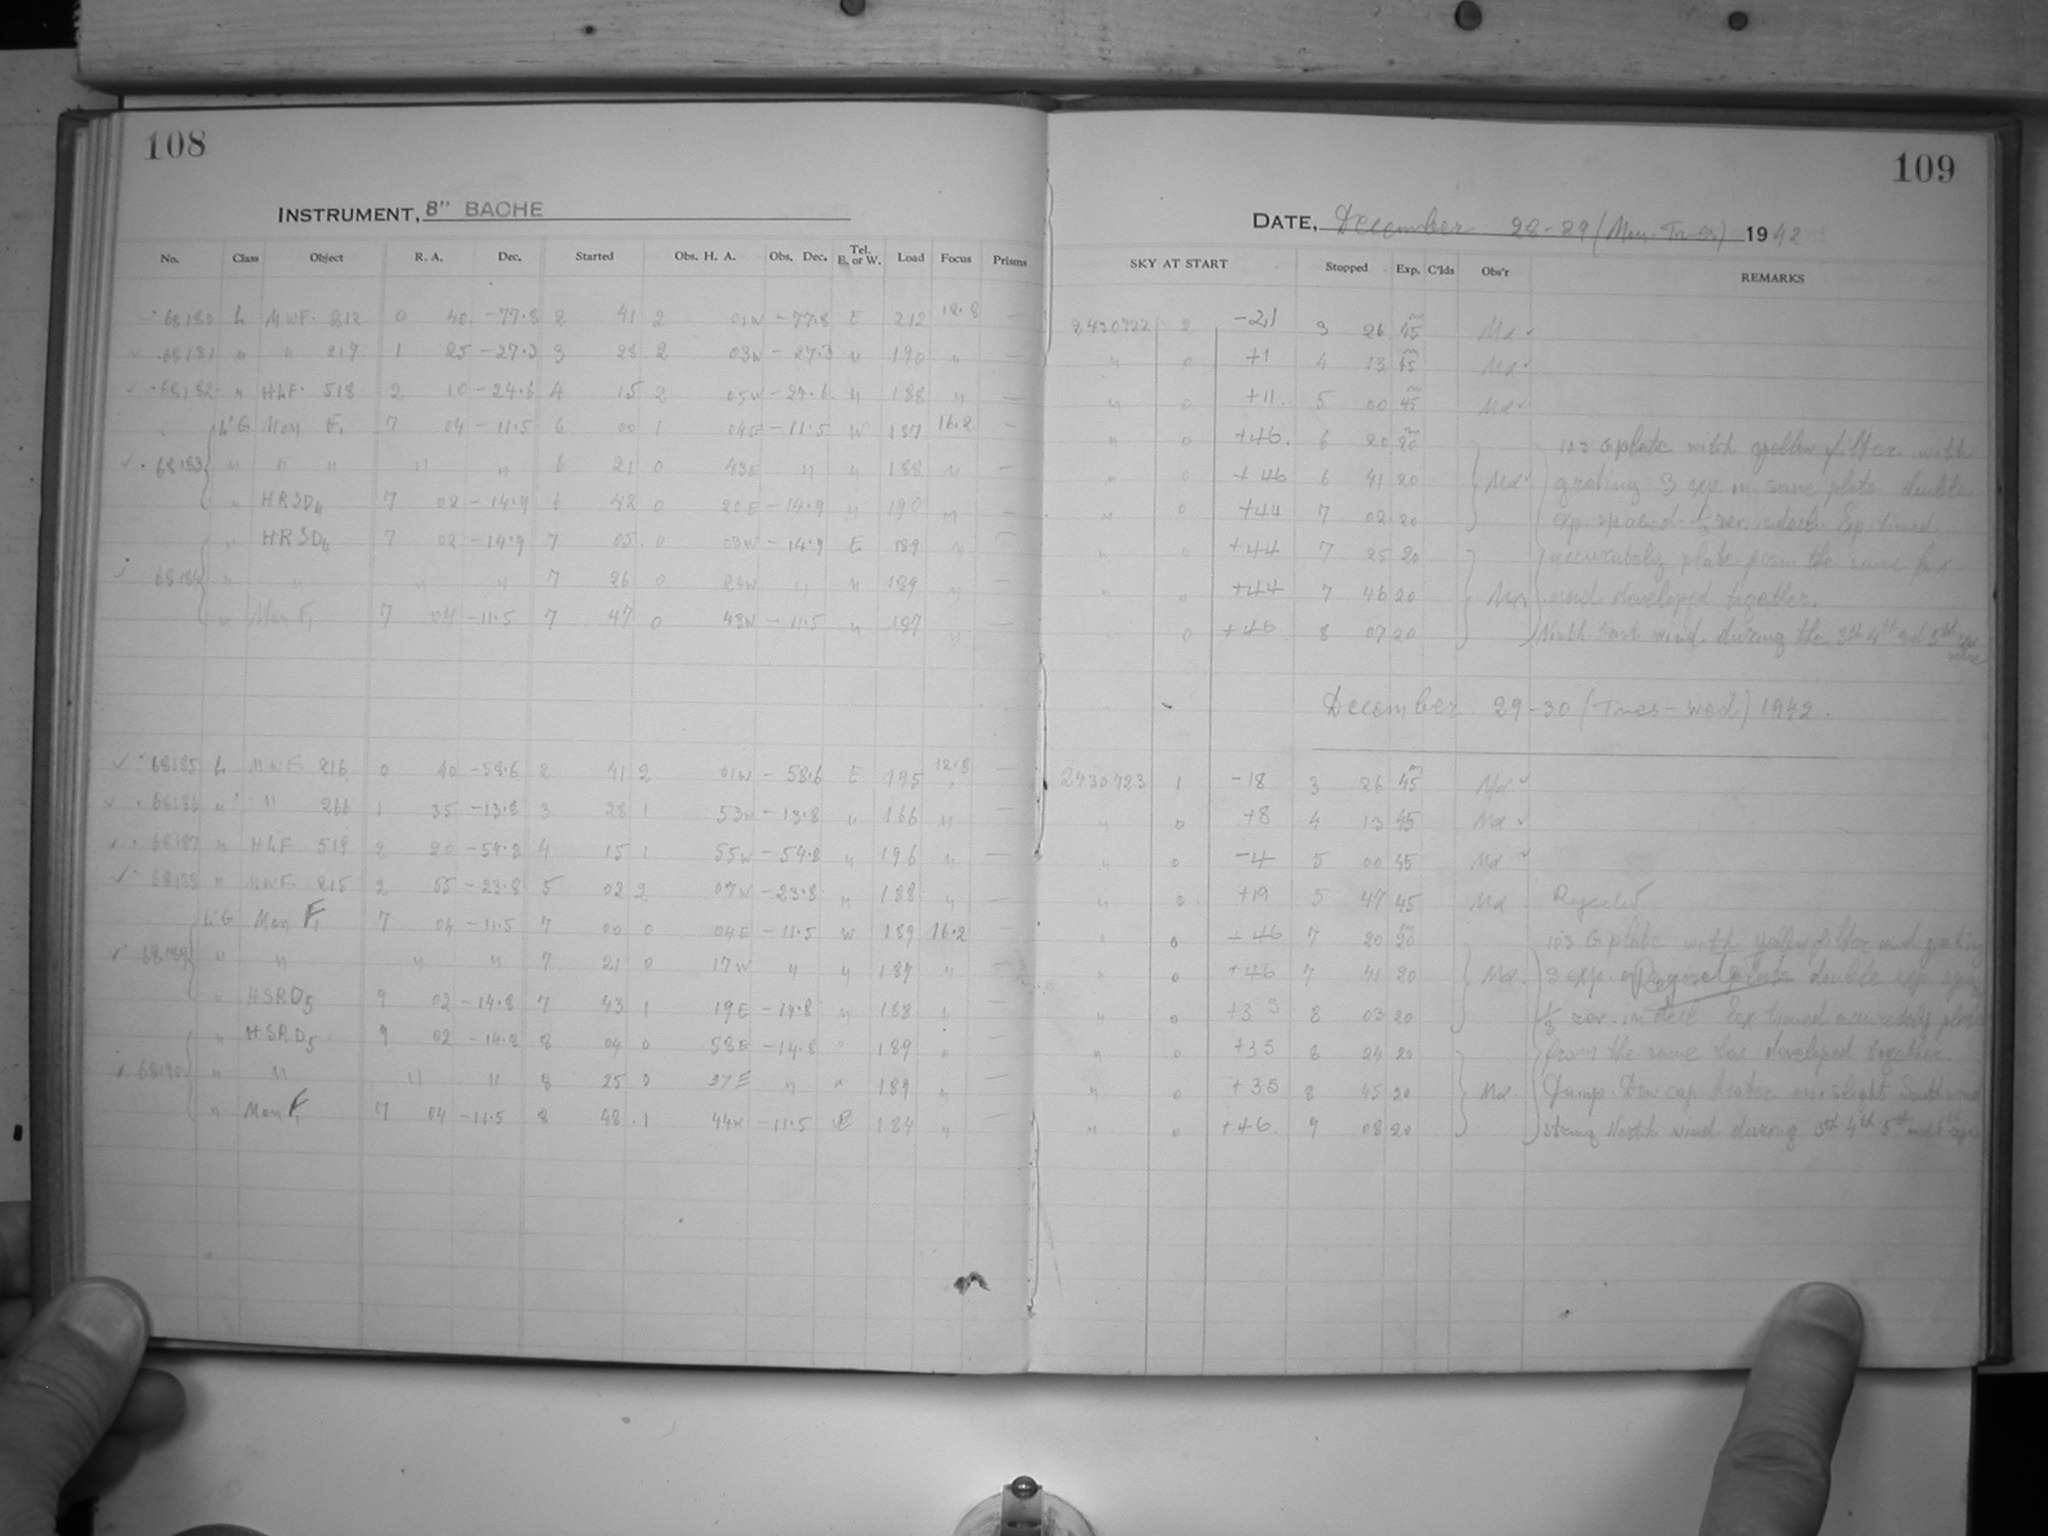 108
INSTRUMENT, 8" BACHE
No. Class Object R. A. Dec. Started Obs. H. A. Obs. Dec. Tel. E. or W. Load Focus Prisms
68180 L MWF. 212 0 40 -77.8 2 41 2 01W -77.8 E 212 12.8 —
68181 " " 217 1 25 -27.3 3 28 2 03W -27.3 " 190 " —
68182 " HLF. 518 2 10 -24.6 4 15 2 05W -24.6 " 188 " —
L'G Mon F1 7 04 -11.5 6 00 1 04E -11.5 W 187 16.2 —
68183 " " " " " 6 21 0 43E " " 188 " —
" HRSD4 7 02 -14.9 6 42 0 20E -14.9 " 190 " —
" HRSD4 7 02 -14.9 7 05 0 03W -14.9 E 189 " —
68184 " " " " 7 26 0 24W " " 189 " —
" Mon F1 7 04 -11.5 7 47 0 43W -11.5 " 187 "
68185 L MWF 216 0 40 -58.6 2 41 2 01W -58.6 E 195 12.8 —
68186 " " 266 1 35 -13.8 3 28 1 53W -13.8 " 166 " —
68187 " HLF 519 2 20 -54.8 4 15 1 55W -54.8 " 196 " —
68188 " MWF. 215 2 55 -23.8 5 02 2 07W -23.8 " 188 " —
L'G Mon F1 7 04 -11.5 7 00 0 04E -11.5 W 189 16.2 —
68189 " " " " 7 21 0 17W " " 187 " —
" HSRD5 9 02 -14.8 7 43 1 19E -14.8 " 188 " —
" HSRD5 9 02 -14.8 8 04 0 58E -14.8 " 189 " —
68190 " " " " 8 25 0 37E " " 189 " —
" Mon F1 7 04 -11.5 8 48 1 44W -11.5 E 184 "
109
DATE, December 28-29 (Mon-Tues) 1942
SKY AT START Stopped Exp. C'lds Obs'r REMARKS
2430722 2 -21 3 26 45 Md
" 0 +1 4 13 45 Md
" 0 +11 5 00 45 Md
" 0 +46. 6 20 20 103 G plate with yellow filter with
" 0 +46 6 41 20 Md grating 3 exp on same plate double
" 0 +44 7 02 20 exp spaced 1/3 rev. Exp timed
" 0 +44 7 25 20 accurately plate from the same box
" 0 +44 7 46 20 Md and developed together.
0 +46 8 07 20 North East wind during the 3rd 4th and 5th
December 29-30 (Tues-Wed) 1942.
2430723 1 -18 3 26 45 Md
" 0 +8 4 13 45 Md
" 0 -4 5 00 45 Md
" 0 +19 5 47 45 Md Rejected
" 0 +46 7 20 20 103 G plate with yellow filter and grating
" 0 +46 7 41 20 Md. 3 exp double exp
" 0 +35 8 03 20 1/3 rev. in Exp timed accurately plate
" 0 +35 8 24 20 from the same box developed together.
" 0 +35 8 45 20 Md. Damp. Dew cap heater on. slight South wind
" 0 +46. 9 08 20 strong North wind during 3rd 4th 5th and 6th